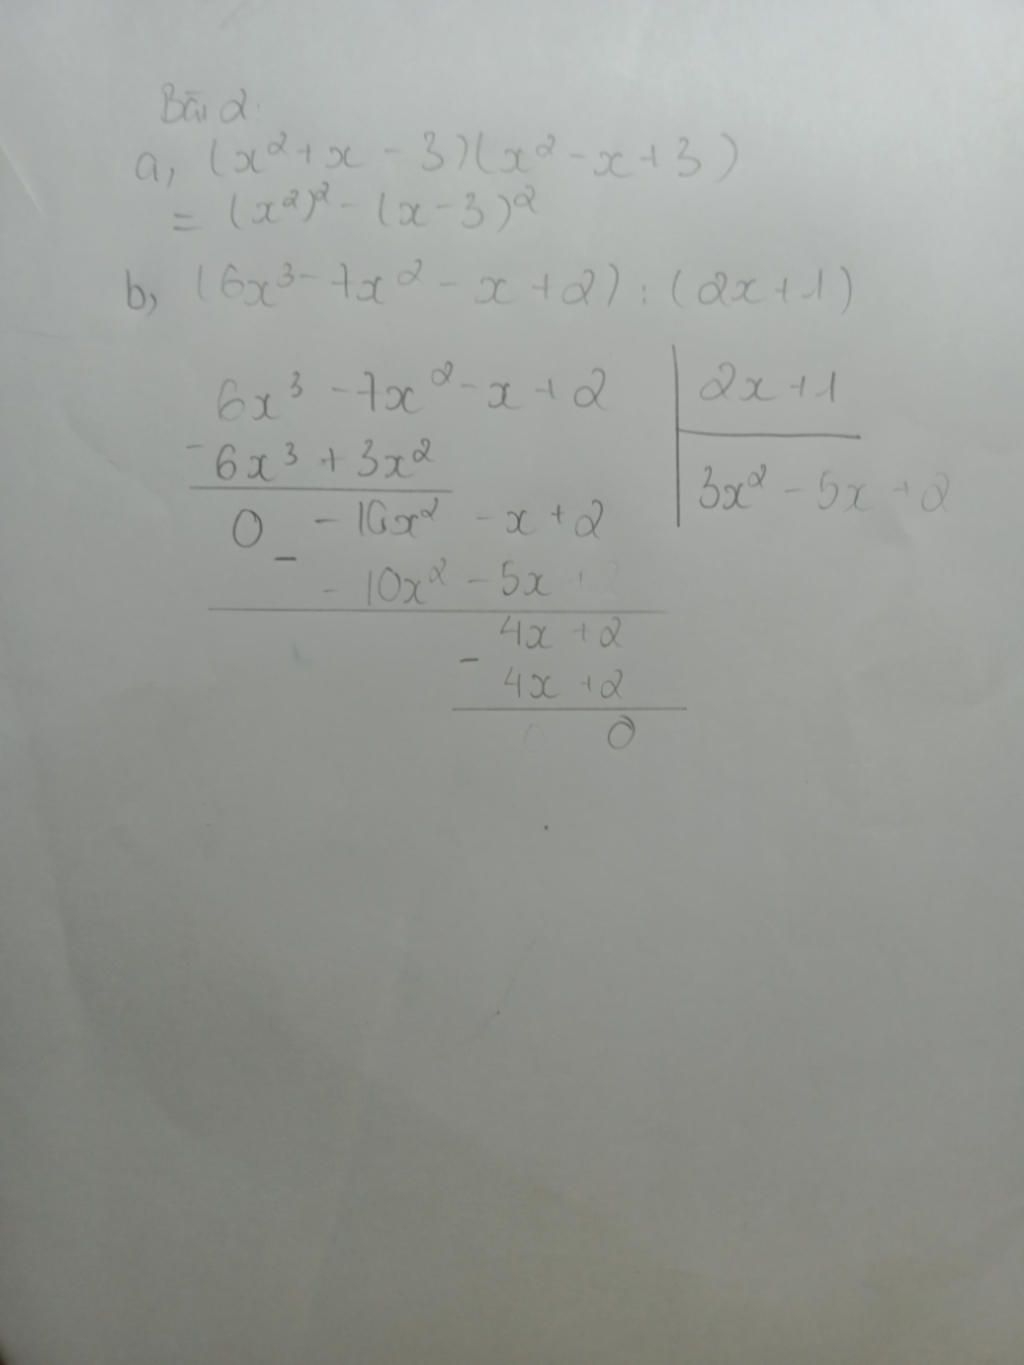 Bài 2:
a, (x² + x - 3)(x² - x + 3)
= (x²)² - (x - 3)²
b, (6x³ - 7x² - x + 2) : (2x + 1)
6x³ - 7x² - x + 2 | 2x + 1
- 6x³ + 3x² | 3x² - 5x + 2
0 - 10x² - x + 2
- - 10x² - 5x
4x + 2
- 4x + 2
0